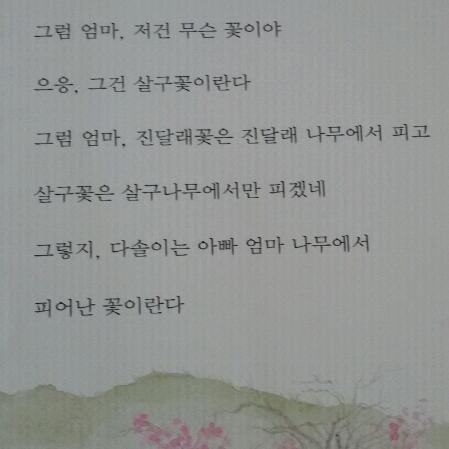 그럼 엄마, 저건 무슨 꽃이야
으응, 그건 살구꽃이란다
그럼 엄마, 진달래꽃은 진달래 나무에서 피고
살구꽃은 살구나무에서만 피겠네
그렇지, 다솔이는 아빠 엄마 나무에서
피어난 꽃이란다